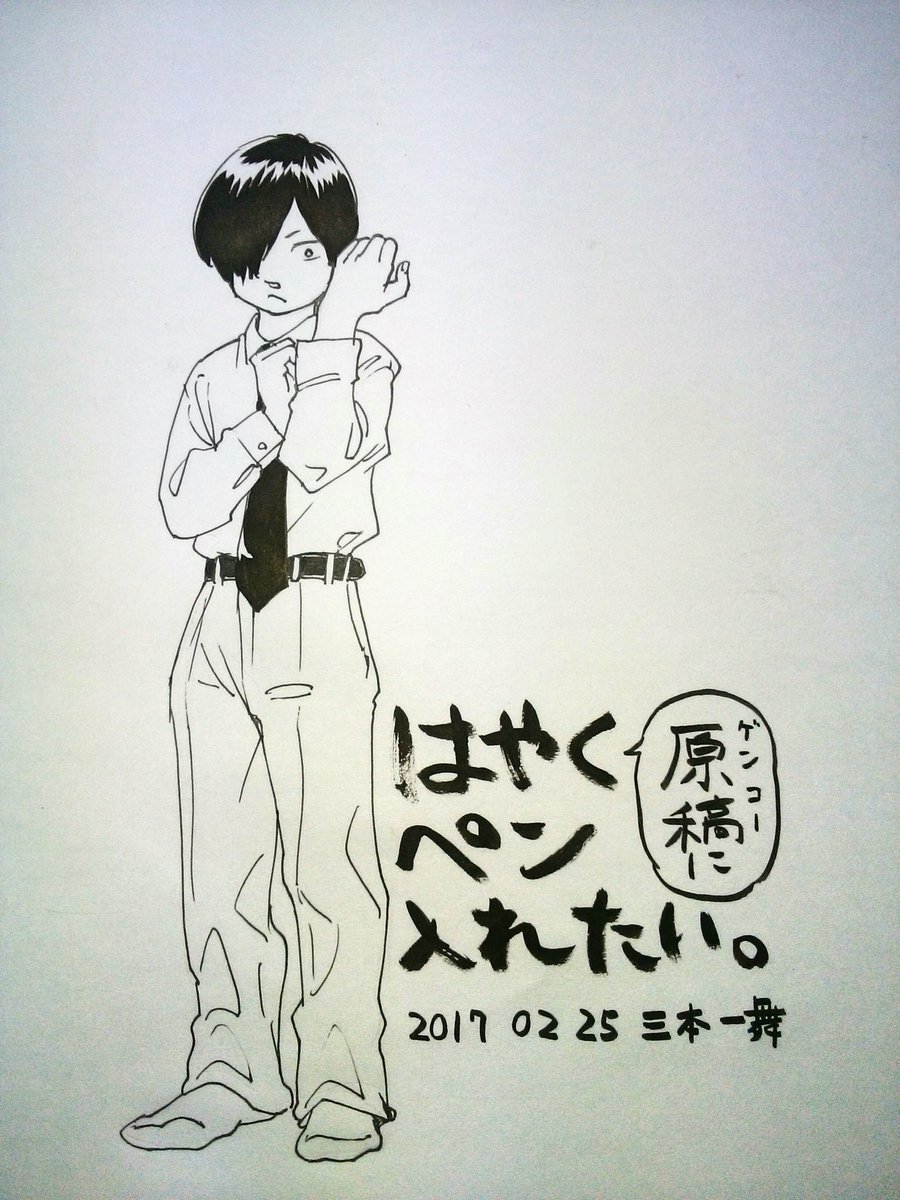 はやく
原稿に
ゲンコー
ペン
入れたい。
2017 02 25 三本一舞